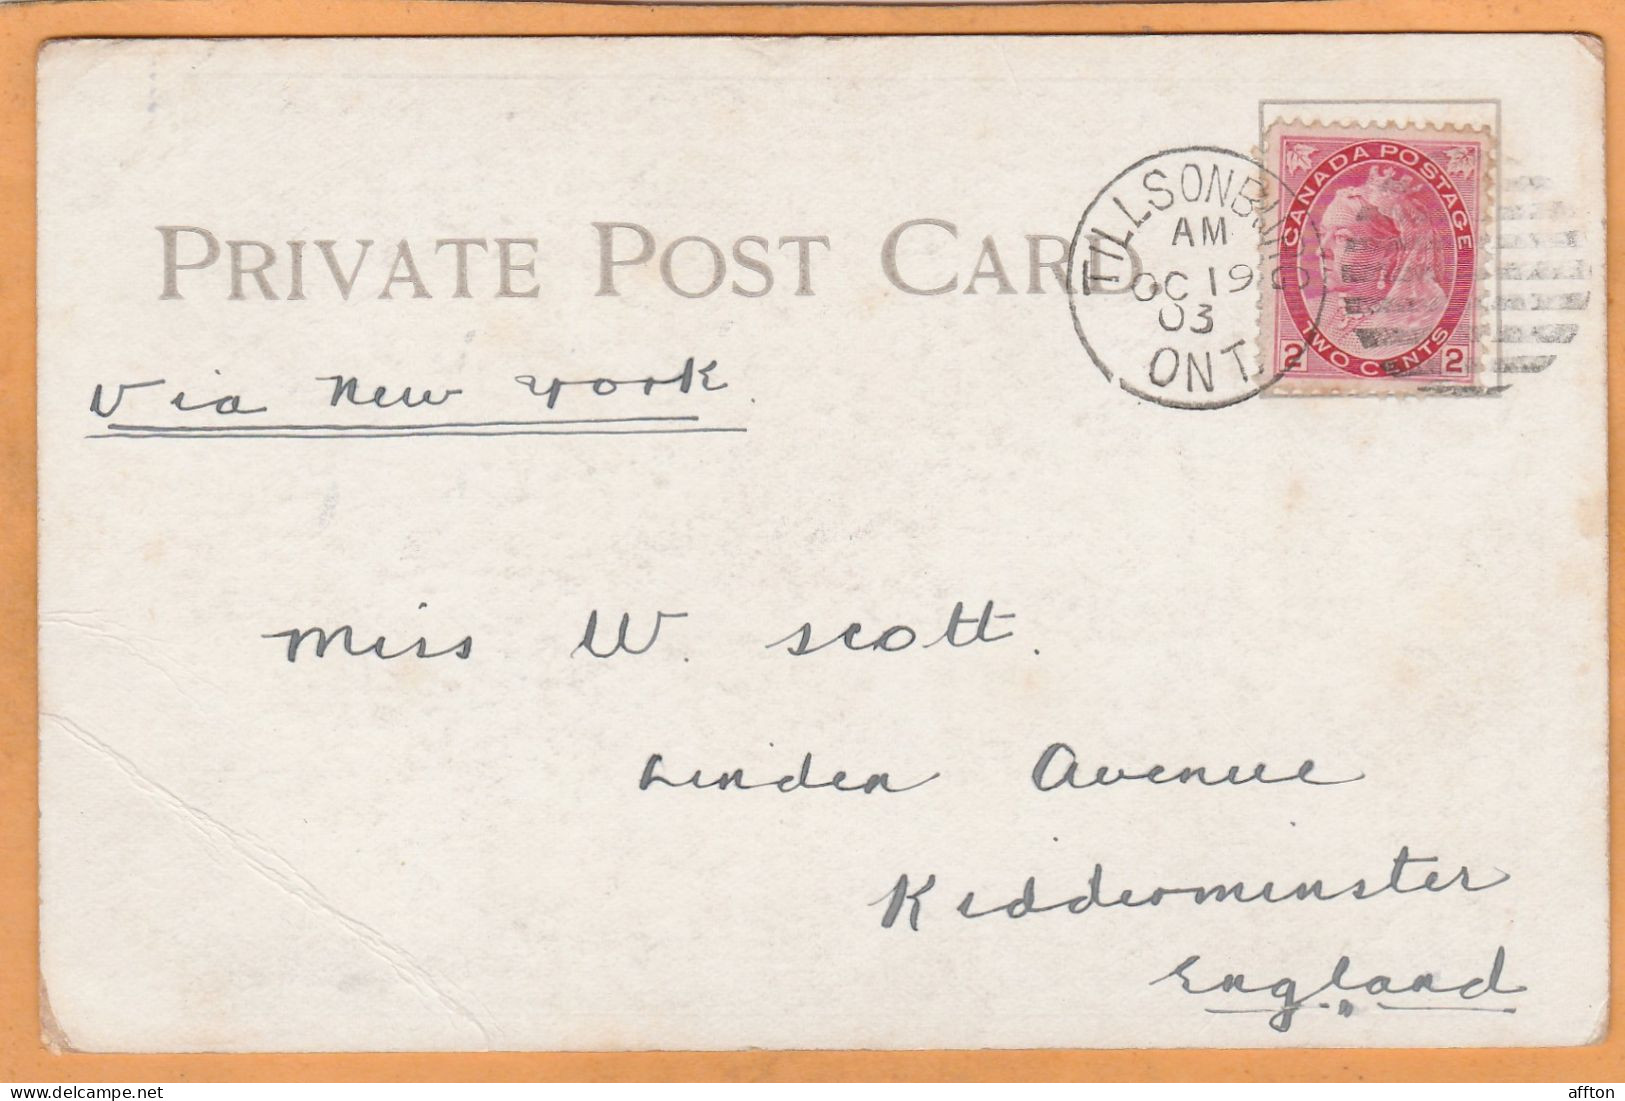 PRIVATE POST CARD.
TILLSONBURG
AM
OC 19
03
ONT.
CANADA POSTAGE
2 TWO CENTS 2
Via New York.
Miss W. Scott.
Linden Avenue
Kidderminster
England
affton